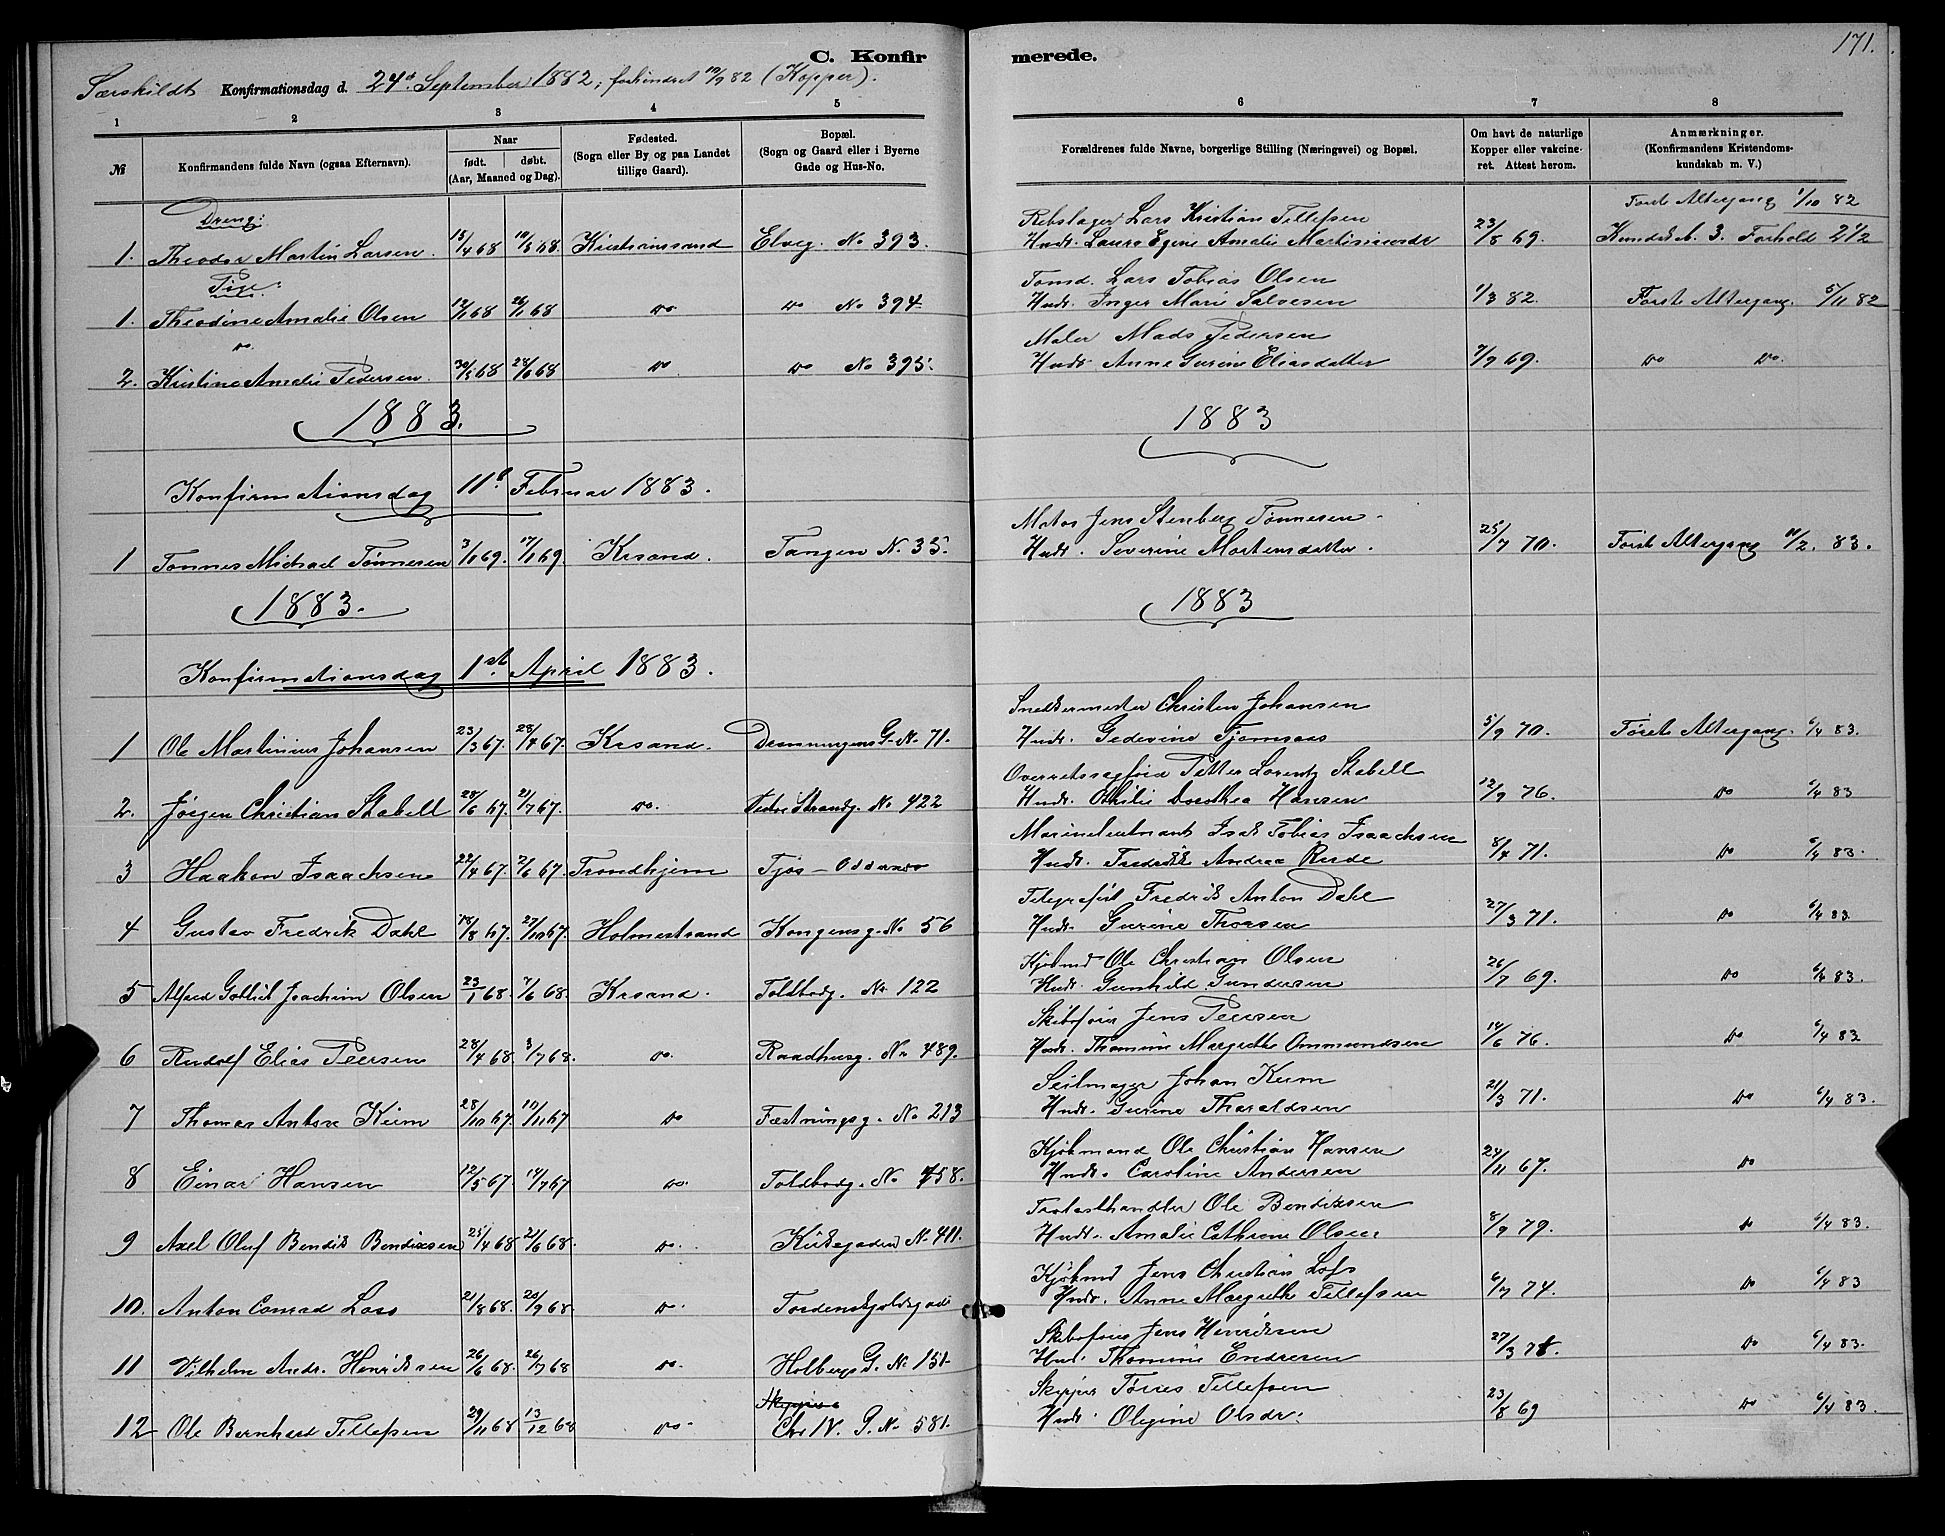 C. Konfirmerede.
171.
Særskildt Konfirmationsdag d. 24de September 1882, forhindret 10/9 82 (Kopper).
1 2 3 4 5 6 7 8
№
Konfirmandens fulde Navn (ogsaa Efternavn).
Naar
født. døbt.
(Aar, Maaned og Dag).
Fødested.
(Sogn eller By og paa Landet
tillige Gaard).
Bopæl.
(Sogn og Gaard eller i Byerne
Gade og Hus-No.
Forældrenes fulde Navne, borgerlige Stilling (Næringsvei) og Bopæl.
Om havt de naturlige
Kopper eller vakcine-
ret. Attest herom.
Anmærkninger.
(Konfirmandens Kristendoms-
kundskab m. V.)
Dreng:
Rebslager Lars Kristian Tellefsen
Første Altergang 1/10 82
1. Theodor Martin Larsen. 13/4 68 10/5 68 Kristianssand Elveg. No 393. Hustr. Laura Egine Amalie 23/8 69. Kundsk. 3. Forhold 2 1/2
Pige:
Tomd. Lars Tobias Olsen
1. Theodine Amalie Olsen 12/1 68 26/1 68 do do No 394. Hustr. Inger Marie Salvesen 1/3 82. Første Altergang. 5/11 82
do
Maler Mads Pedersen
2. Kristine Amalie Pedersen. 30/3 68 28/6 68 do do No 395. Hustr. Anne Gurine Eliasdatter 7/9 69. do do.
1883. 1883
Konfirmationsdag 11te Februar 1883.
Matos Jens Stenberg Tønnesen.
1 Tønnes Michael Tønnesen 3/1 69. 17/1 69. Krsand. Tangen N. 35. Hustr. Severine Mortensdatter. 25/7 70. Første Altergang 11/2. 83.
1883. 1883
Konfirmationsdag 1ste April 1883.
Snedkermester Christen Johansen
1 Ole Martinius Johansen 23/3 67. 28/4 67. Krsand. Dronningens G. N. 71. Hustr. Gedevine Tjomsaas 5/9 70. Første Altergang. 6/4 83.
Overretssagfører Petter Lorentz Stabell
2. Jørgen Christian Stabell 28/6 67. 21/7 67. do. Vestre Strandg. No 422 Hustr. Othilie Dorothea Hansen 12/9 76. do 6/4 83
Marinelieutnant Isak Tobias Isaachsen
3 Haakon Isaachsen 22/4 67. 2/6 67. Trondhjem Tjos - Oddernes Hustr. Fredrikke Andrea Rerde 8/4 71. do 6/4 83.
Telegrafist Fredrik Anton Dahl
4 Gustav Fredrik Dahl 18/8 67. 27/10 67. Holmestrand Kongensg. No 56 Hustr. Gurine Thorsen 27/3 71. do 6/4 83
Kjøbmd Ole Christian Olsen
5 Alfred Gotlieb Joachim Olsen 23/1 68. 7/6 68. Krsand. Toldbodg. Nr. 122 Hustr. Gunhild Gundersen 26/7 69. do 6/4 83.
Skibsfører Jens Peersen
6 Rudolf Elias Peersen 28/4 68. 3/7 68. do. Raadhusg. Nr 489. Hustr. Thomine Margrethe Ommundsen 14/6 76. do 6/4 83
Seilmager Johan Keim
7 Thomas Anton Keim 28/10 67. 10/11 67 do Fæstningsg. No 213 Hustr. Gurine Tharaldsen 21/3 71. do 6/4 83.
Kjøbmand Ole Christian Hansen
8 Einar Hansen 12/5 67 14/7 67 do. Toldbodg. No 458. Hustr. Caroline Andersen 24/11 67. do
Ole Bendiksen
9 Axel Oluf Bendik Bendixsen 25/4 68 21/6 68. do. Kirkegaden N. 411. Hustr. Amalie Cathrine Olsen 8/9 79. do 6/4 83.
Kjøbmd Jens Christian Lofs
10. Anton Conrad Loss 2/8 68. 20/9 68. do. Tordenskjoldsgade Hustr. Anne Margrethe Tellefsen 6/7 74. do 6/4 83
Skibsfører Jens Henriksen
11 Vilhelm Andr. Henriksen 26/6 68. 26/7 68 do. Holbergs G. No 151. Hustr. Thomine Endresen 27/3 78. do 6/4 83.
Skipper Torres Tellefsen
12 Ole Bernhard Tellefsen 29/11 68 13/12 68 do. Chr IV. G. No 581. Hustr. Olegine Olsdr. 23/8 69 do 6/4 83.